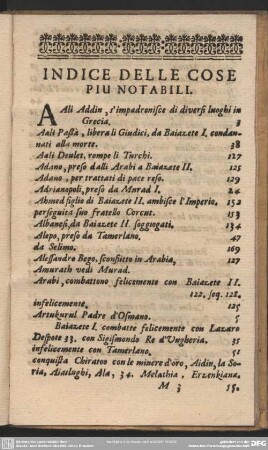 INDICE DELLE COSE
PIU NOTABILI.
AAli Addin, s'impadronisce di diversi luoghi in
Grecia. 3
Aali Passà, libera li Giudici, da Baiazete I. condan-
nati alla morte. 38
Aali Deulet, rompe li Turchi. 127
Adano, preso dalli Arabi a Baiazete II. 125
Adano, per trattati di pace reso. 129
Adrianopoli, preso da Murad I. 24
Ahmed figlio di Baiazete II. ambisce l'Imperio, 152
perseguita suo fratello Corcut. 153
Albanesi, da Baiazete II. soggiogati, 134
Alepo, preso da Tamerlano, 47
da Selimo. 169
Alessandro Bego, sconfitto in Arabia, 127
Amurath vedi Murad.
Arabi, combattono felicemente con Baiazete II.
122, seq. 128.
infelicemente, 125
Artukurul Padre d'Osmano.
Baiazete I. combatte felicemente con Lazaro
Despote 33. con Sigismondo Re d'Ungheria. 35
infelicemente con Tamerlano. 51
conquista Chiratoo con le minere d'oro, Aidin, la So-
ria, Aiasilughi, Ala, 34. Melathia, Erzenkiana,
M 3 35.